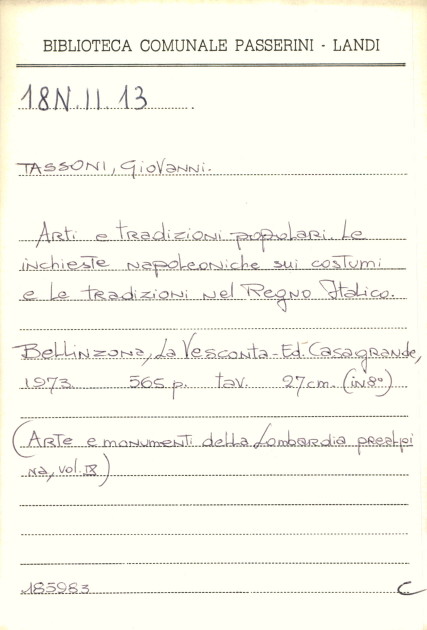 BIBLIOTECA COMUNALE PASSERINI - LANDI
18N.II.13
TASSONI, Giovanni.
Arti e tradizioni popolari. Le
inchieste napoleoniche sui costumi
e le tradizioni nel Regno Italico.
Bellinzona, La Vesconta - Ed. Casagrande,
1973 565 p. tav. 27 cm. (in 8°)
(Arte e monumenti della Lombardia prealpi
na, vol. IX)
185983 C